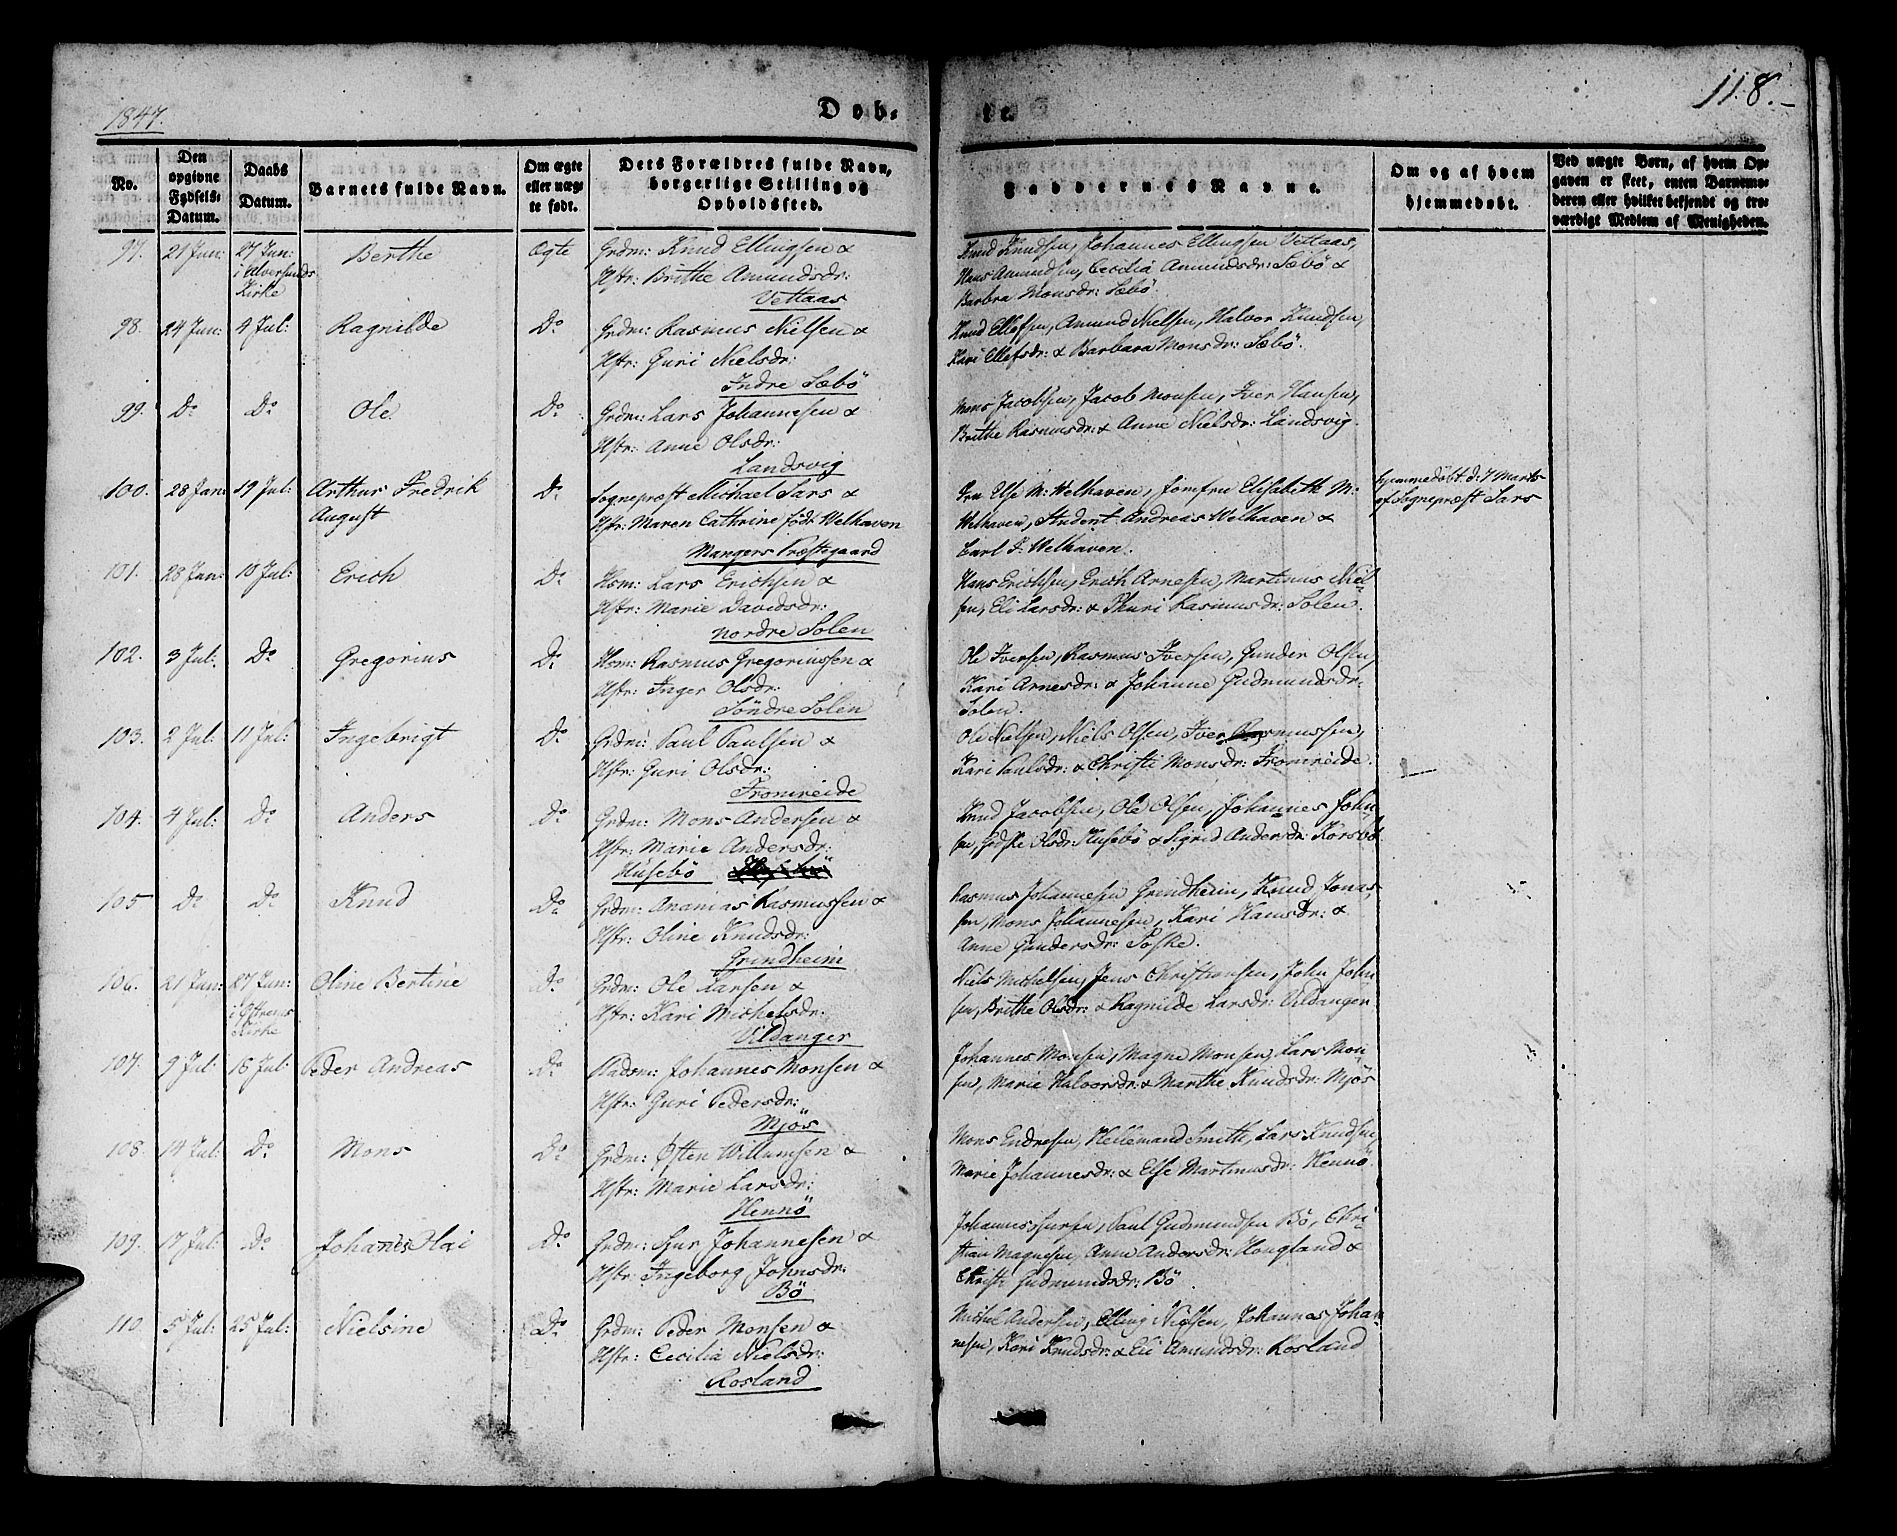 1847.
Døb-
te.
118.-
No.
Den opgivne Fødsels-Datum.
Daabs Datum.
Barnets fulde Navn.
Om ægte eller uæg-te født.
Dets Forældres fulde Navn, borgerlige Stilling og Opholdssted.
Faddernes Navne.
Om og af hvem hjemmedøbt.
Ved uægte Børn, af hvem Op-
gaven er skeet, enten Barnemo-
deren eller hvilket bekjendt og tro-
værdigt Medlem af Menigheden.
97. 21 Jun: 27 Jun: Berthe Ægte Grdm: Knud Ellingsen &
i Alversunds
Kirke
Hstr: Brithe Amundsdr:
Vettaas
Knud Knudsen, Johannes Ellingsen Vettaas,
Hans Amundsen, Cecilia Amundsdr: Sæbö &
Barbra Monsdr: Sæbö.
98. 24 Jun: 4 Jul: Ragnilde Do Grdm: Rasmus Nielsen &
Hstr: Guri Nielsdr:
Indre Sæbö
Knud Ellefsen, Amund Nielsen, Halvor Knudsen,
Kari Ellefsdr: & Barbara Monsdr: Sæbö.
99. Do Do Ole Do Grdm: Lars Johannesen &
Hstr: Anne Olsdr:
Landsvig
Mons Jacobsen, Jacob Monsen, Iver Hansen,
Brithe Rasmusdr: & Anne Nielsdr: Landsvig.
100. 28 Jan: 19 Jul: Arthur Fredrik Do Sognepræst Michael Sars &
August
Hstr: Maren Cathrine født Welhaven
Mangers Præstegaard
Fru Else M: Welhaven, Jomfru Elisabeth M:
Welhaven, Student Andreas Welhaven &
Carl J. Welhaven.
hjemmedöbt d: 7 Marts
af Sognepræst Sars
101. 28 Jun: 10 Jul: Erich Do Hsm: Lars Erichsen &
Hstr: Marie Davidsdr:
nordre Solen
Hans Erichsen, Erich Arnesen, Martinus Niel-
sen, Eli Larsdr: & Thuri Rasmusdr: Solen.
102. 3 Jul: Do Gregorius Do Hsm: Rasmus Gregoriussen &
Hstr: Inger Olsdr:
Söndre Solen
Ole Iversen, Rasmus Iversen, Gunder Olsen,
Kari Arnesdr: & Johanne Gudmundsdr:
Solen.
103. 2 Jul: 11 Jul: Ingebrigt Do Grdm: Paul Paulsen &
Hstr: Guri Olsdr:
Fromreide
Ole Nielsen, Niels Olsen, Iver Rasmussen,
Kari Paulsdr: & Christi Monsdr: Fromreide.
104. 4 Jul: Do Anders Do Grdm: Mons Andersen &
Hstr: Marie Andersdr:
Husebö
Knud Jacobsen, Ole Olsen, Johannes John-
sen, Olsdr: Husebö & Sigrid Andersdr: Korsbö
105 Do Do Knud Do Grdm: Ananias Rasmussen &
Hstr: Oline Knudsdr:
Grindheim
Rasmus Johannesen Grindheim, Knud Jonas-
sen, Mons Johannesen, Kari Hansdr: &
Anne Gundersdr: Toske.
106. 21 Jun: 27 Jun: Oline Bertine Do Grdm: Ole Larsen &
Kirke
Hstr: Kari Michelsdr:
Uldanger
Niels Michelsen, Jens Christiansen, John John-
sen, Brithe Olsdr: & Ragnilde Larsdr: Uldanger
107. 9 Jul: 18 Jul: Peder Andreas Do Pladsm: Johannes Monsen &
Hstr: Guri Pedersdr:
Mjös
Johannes Monsen, Magne Monsen, Lars Mon-
sen, Marie Halvorsdr: & Marthe Knudsdr: Mjös
108. 14 Jul: Do Mons Do Grdm: Østen Willumsen &
Hstr: Marie Larsdr:
Hennö
Mons Endresen, Hellemand Smith, Lars Knudsen,
Marie Johannesdr: & Else Martinusdr: Hennö.
109. 17 Jul: Do Johannes Do Grdm: Sjur Johannesen &
Hstr: Ingeborg Johnsdr:
Bö
Johannes Sjursen, Paul Gudmundsen Bö, Chri-
stian Magnesen, Anne Andersdr: Hougland &
Christi Gudmundsdr: Bö
110. 5 Jul: 25 Jul: Nielsine Do Grdm: Peder Monsen &
Hstr: Cecilia Nielsdr:
Rosland
Michel Andersen, Elling Nielsen, Johannes Johan-
nesen, Kari Knudsdr: & Eli Amundsdr: Rosland